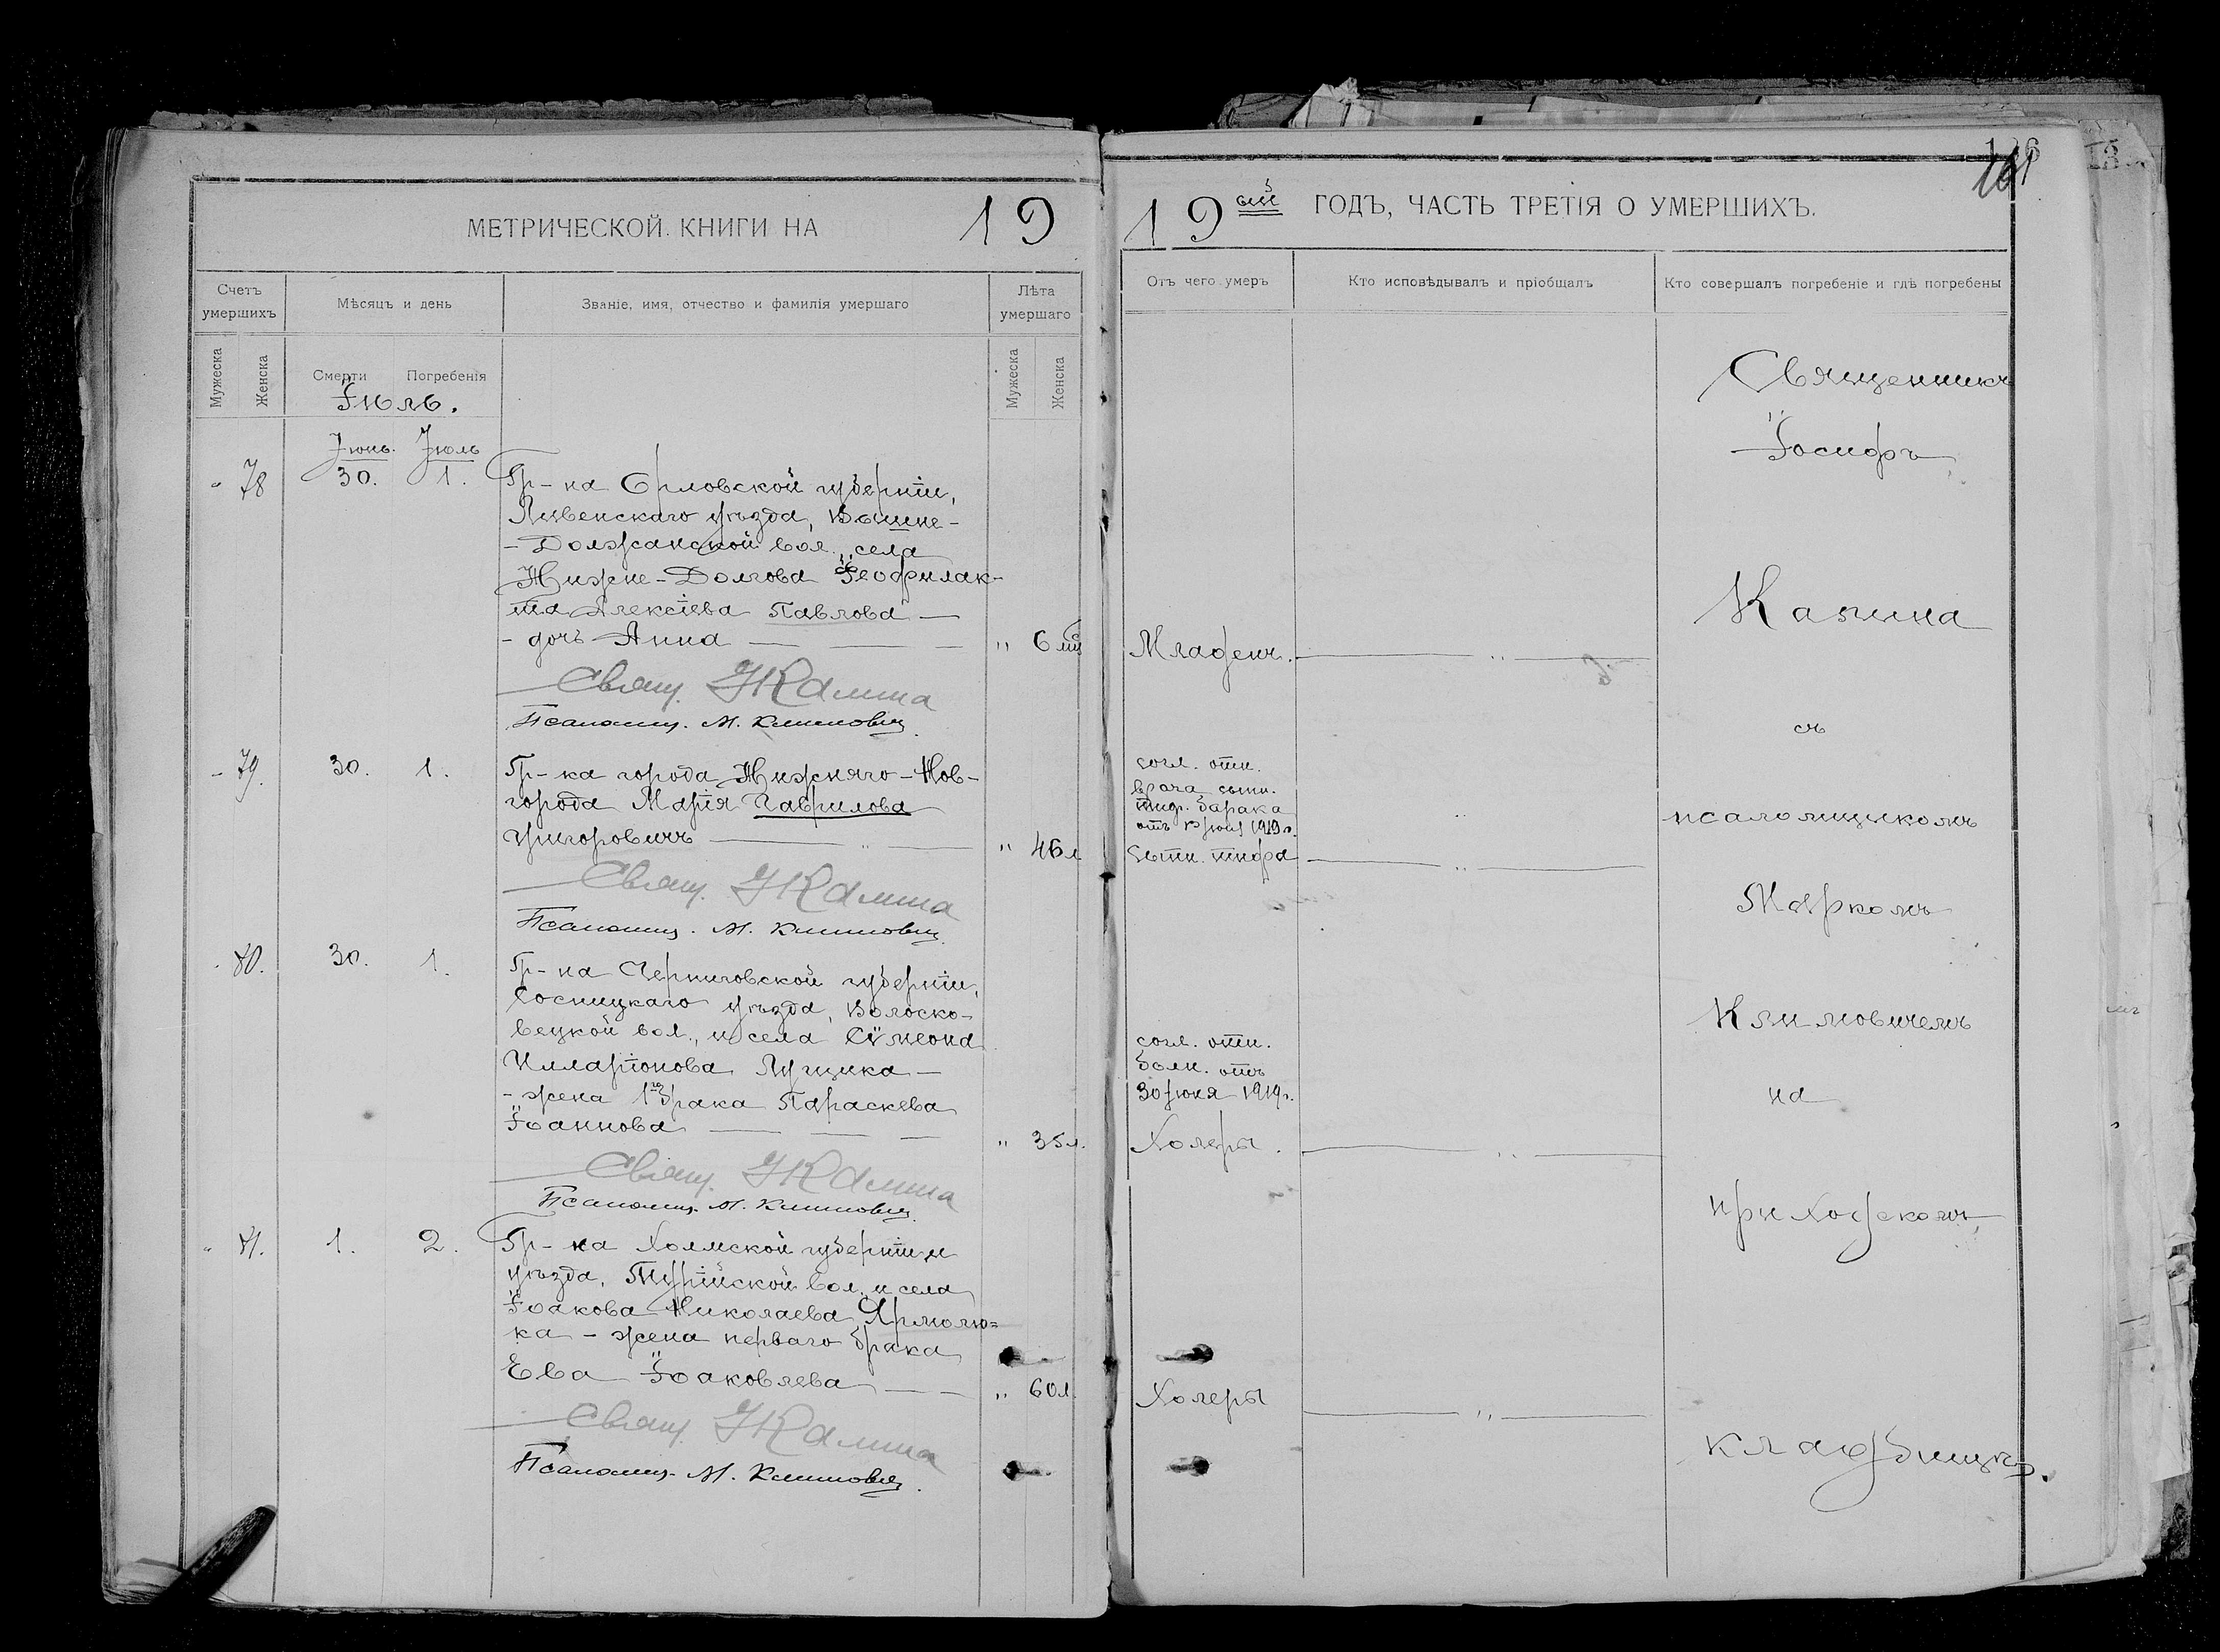 МЕТРИЧЕСКОЙ КНИГИ НА 19
Счетъ умершихъ
Мѣсяцъ и день
Званіе, имя, отчество и фамилія умершаго
Лѣта умершаго
Мужеска
Женска
Смерти
Погребенія
Мужеска
Женска
Іюль.
Іюнь. Іюль
78 30. 1.
Гр-на Орловской губерніи,
Ливенскаго уѣзда, Вышне-
-Должанской вол., села
Нижне-Долгова Ѳеофилак-
та Алексіева Павлова —
- дочь Анна — " 6 м.
Свящ. І Калина
Псаломщ. М. Климович
- 79. 30. 1.
Гр-ка города Нижняго-Нов-
города Марія Гаврилова
Григоровичъ — " 46 л
Свящ. І Калина
Псаломщ. М. Климович
80. 30. 1.
Гр-на Черниговской губерніи,
Сосницкаго уѣзда, Волоско-
вецкой вол., и села Сѵмеона
Илларіонова Лущика —
- жена 1го брака Параскева
Іоаннова — " 35 л.
Свящ. І Калина
Псаломщ. М. Климович
" 81. 1. 2.
Гр-на Холмской губерніи и
уѣзда, Турійской вол. и села
Іоакова Николаева Ярмолю=
ка - жена перваго брака
Ева Іоаковлева — " 60 л.
Свящ. І Калина
Псаломщ. М. Климович
161
19 ый ГОДЪ, ЧАСТЬ ТРЕТІЯ О УМЕРШИХЪ.
Отъ чего умеръ
Кто исповѣдывалъ и пріобщалъ
Кто совершалъ погребеніе и гдѣ погребены
Младенч.
согл. отн.
врача сыпн.
тиф. барака
1919 г.
Сыпн. тифа
согл. отн.
болн. отъ
30 Іюня 1919 г.
Холеры.
Холеры
Священникъ
Іосифъ
Калина
съ
псаломщикомъ
Маркомъ
Климовичемъ
на
приходскомъ
кладбищѣ.